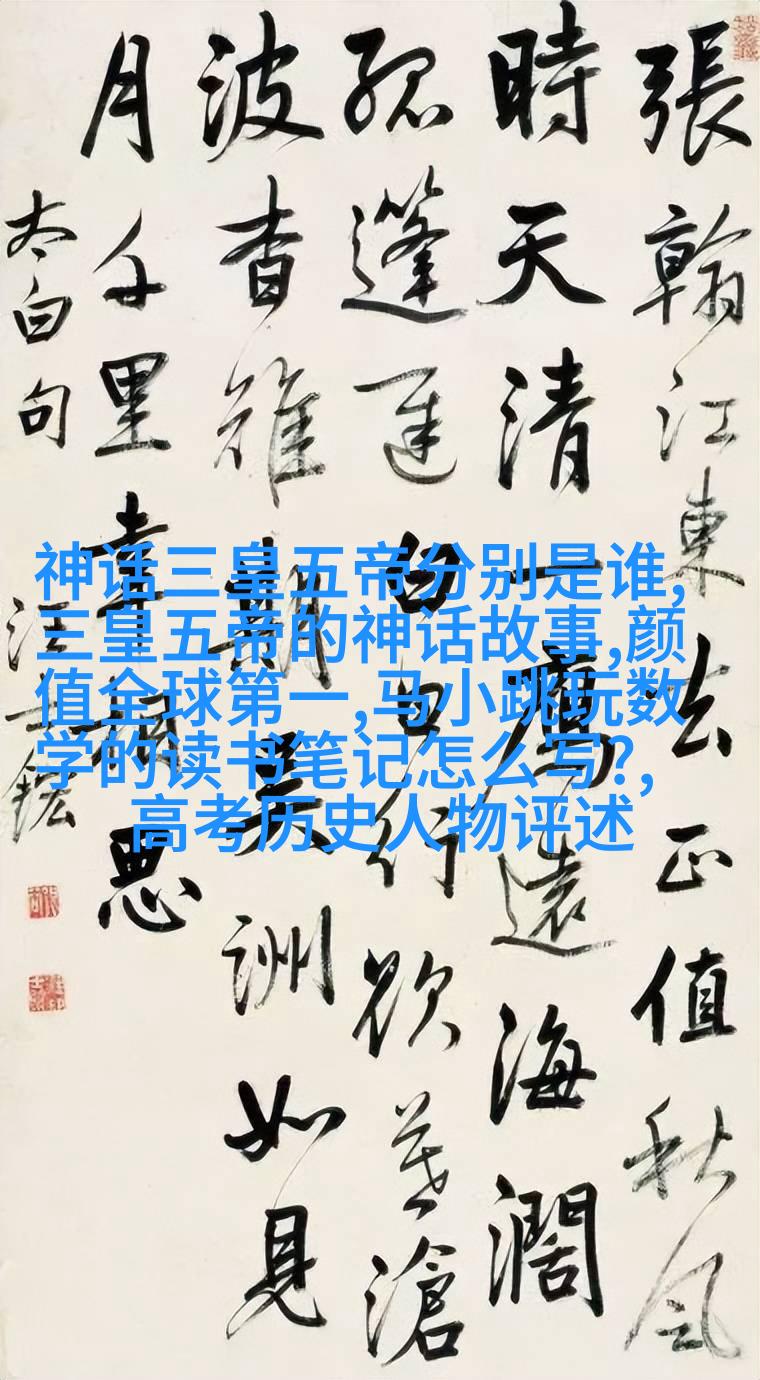 張翰江東去正值秋風
時天清一鴈遠海濶
孤蓬遲白日行欲暮滄
波杳難期吴洲如見
月千里幸相思
太白句
汪士鋐
神话三皇五帝分别是谁,
三皇五帝的神话故事,颜
值全球第一,马小跳玩数
学的读书笔记怎么写?,
高考历史人物评述